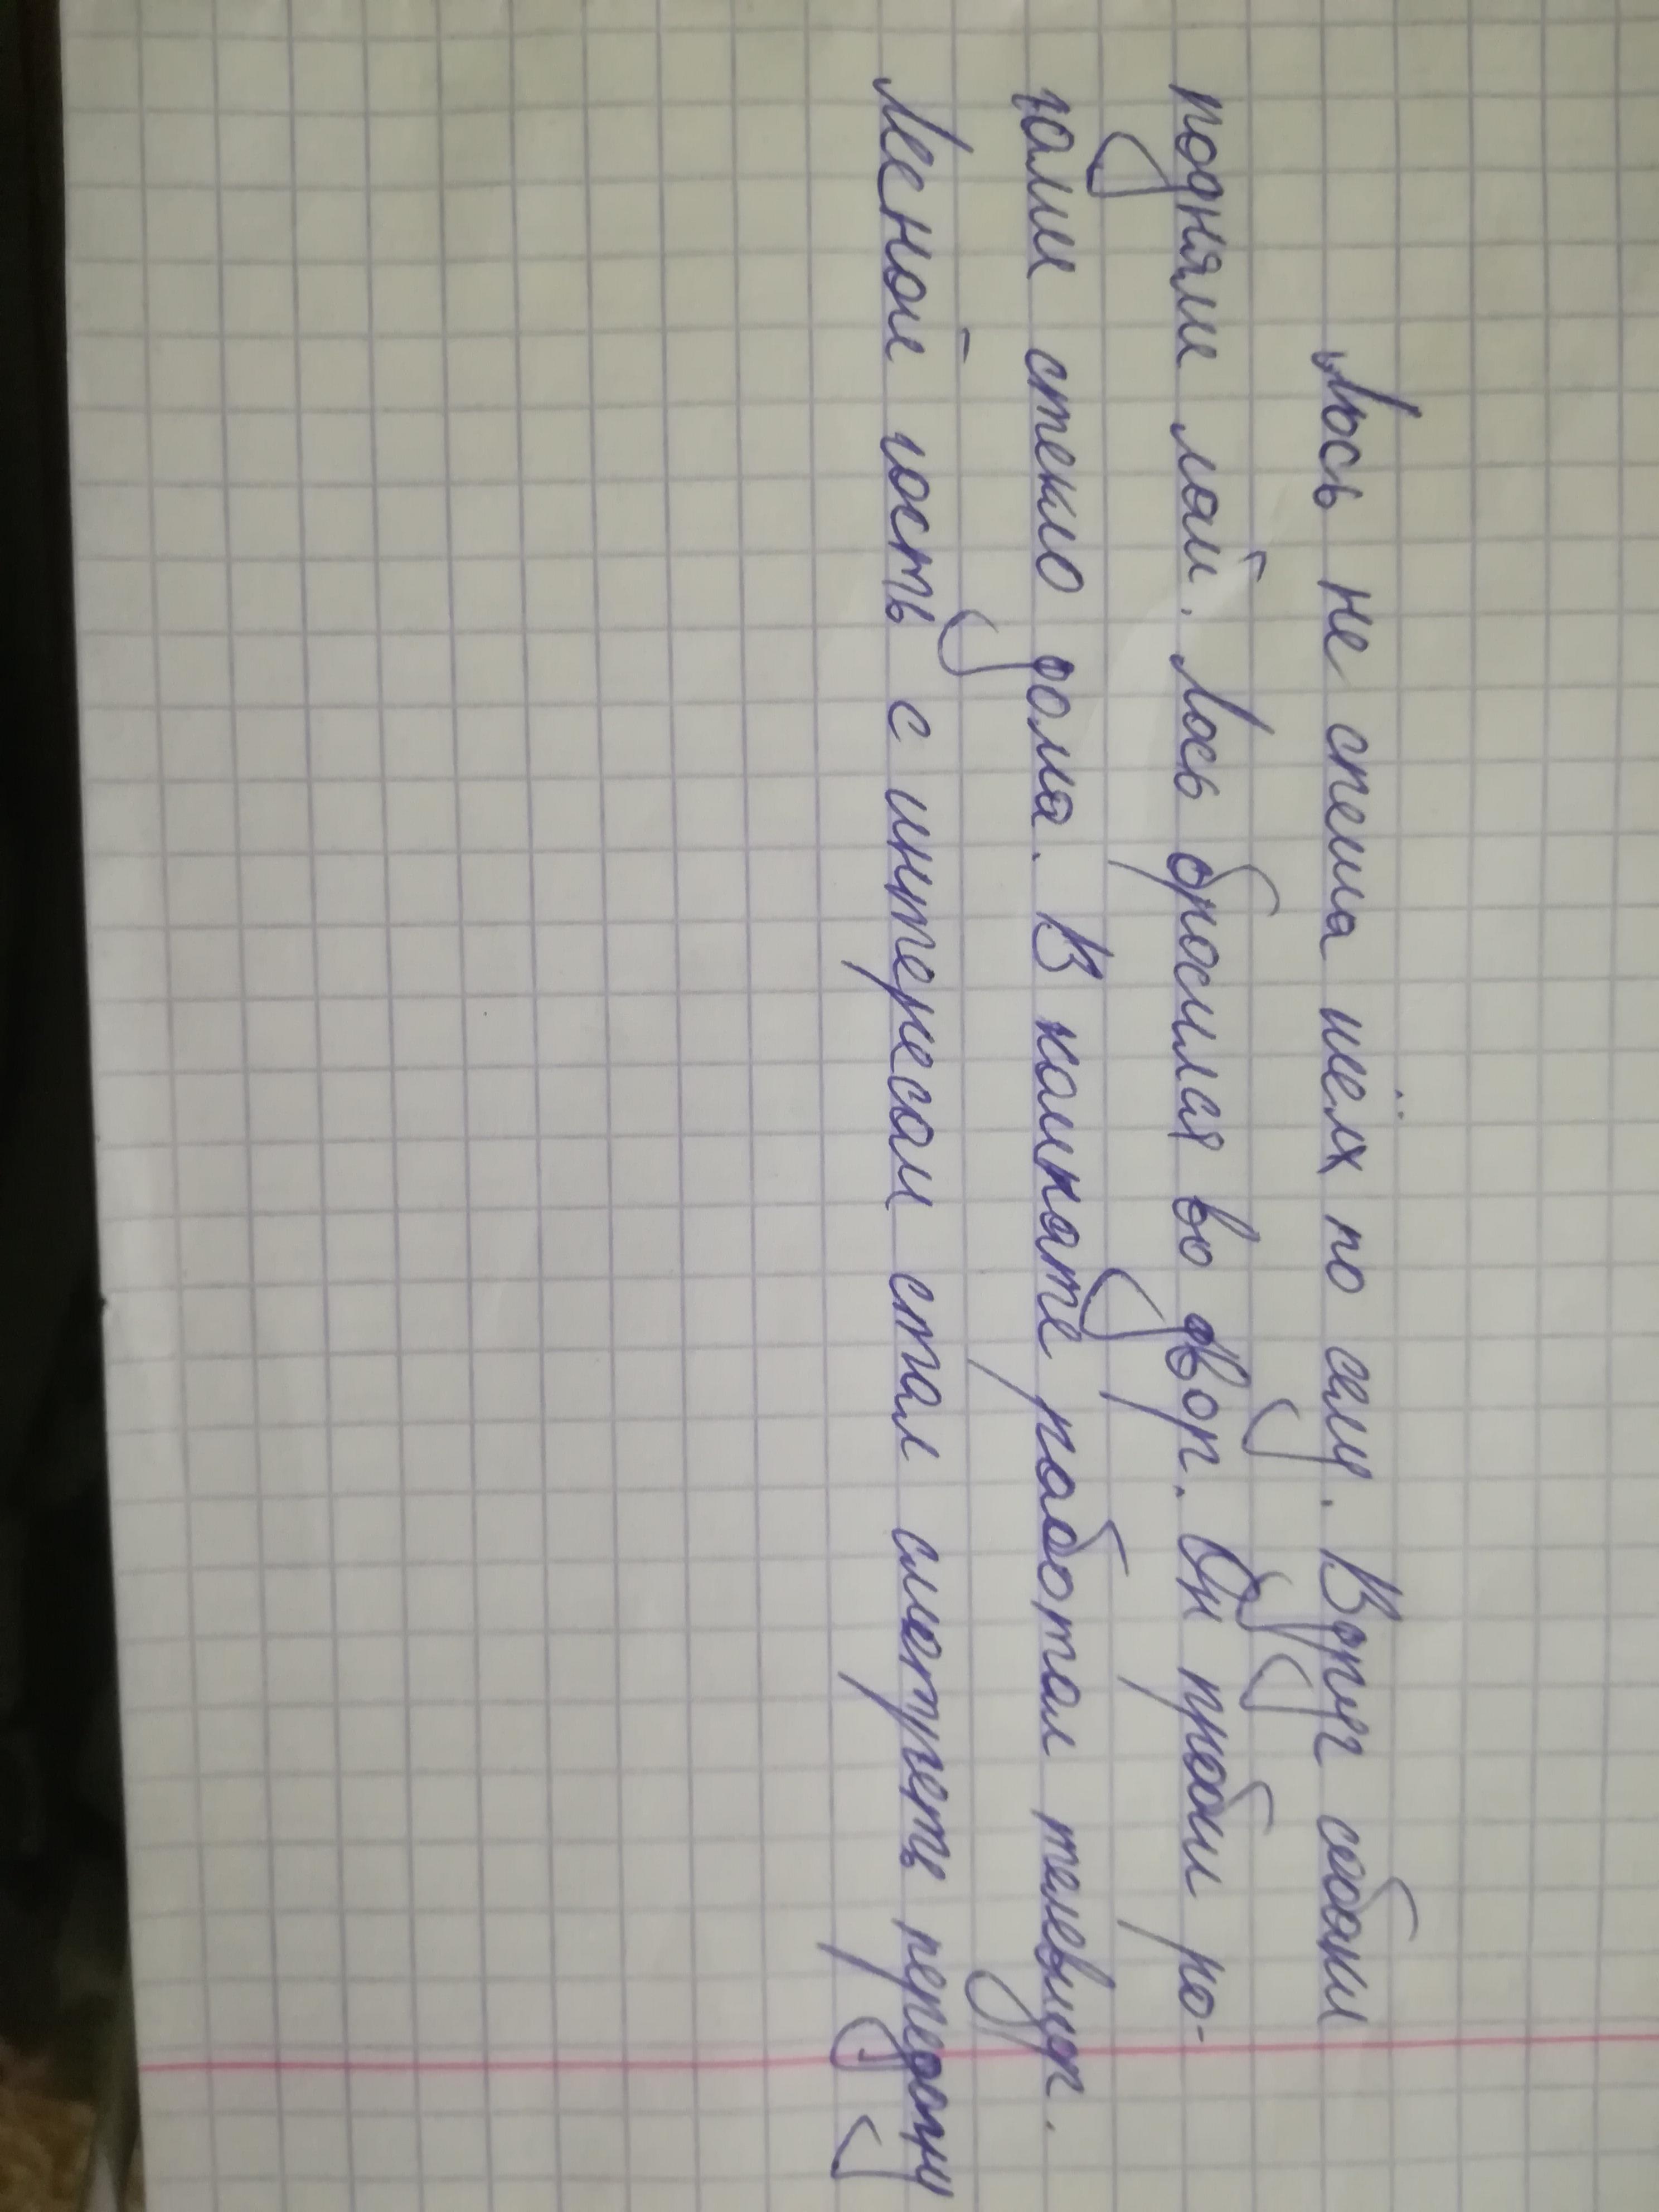 Лось не спеша шёлх по селу. Вдруг собаки
подняли лай. Лось бросился во двор. Он пробил ро-
гами стекло дома. В комнате работал телевизор.
Лесной гость с интересом стал смотреть передачу